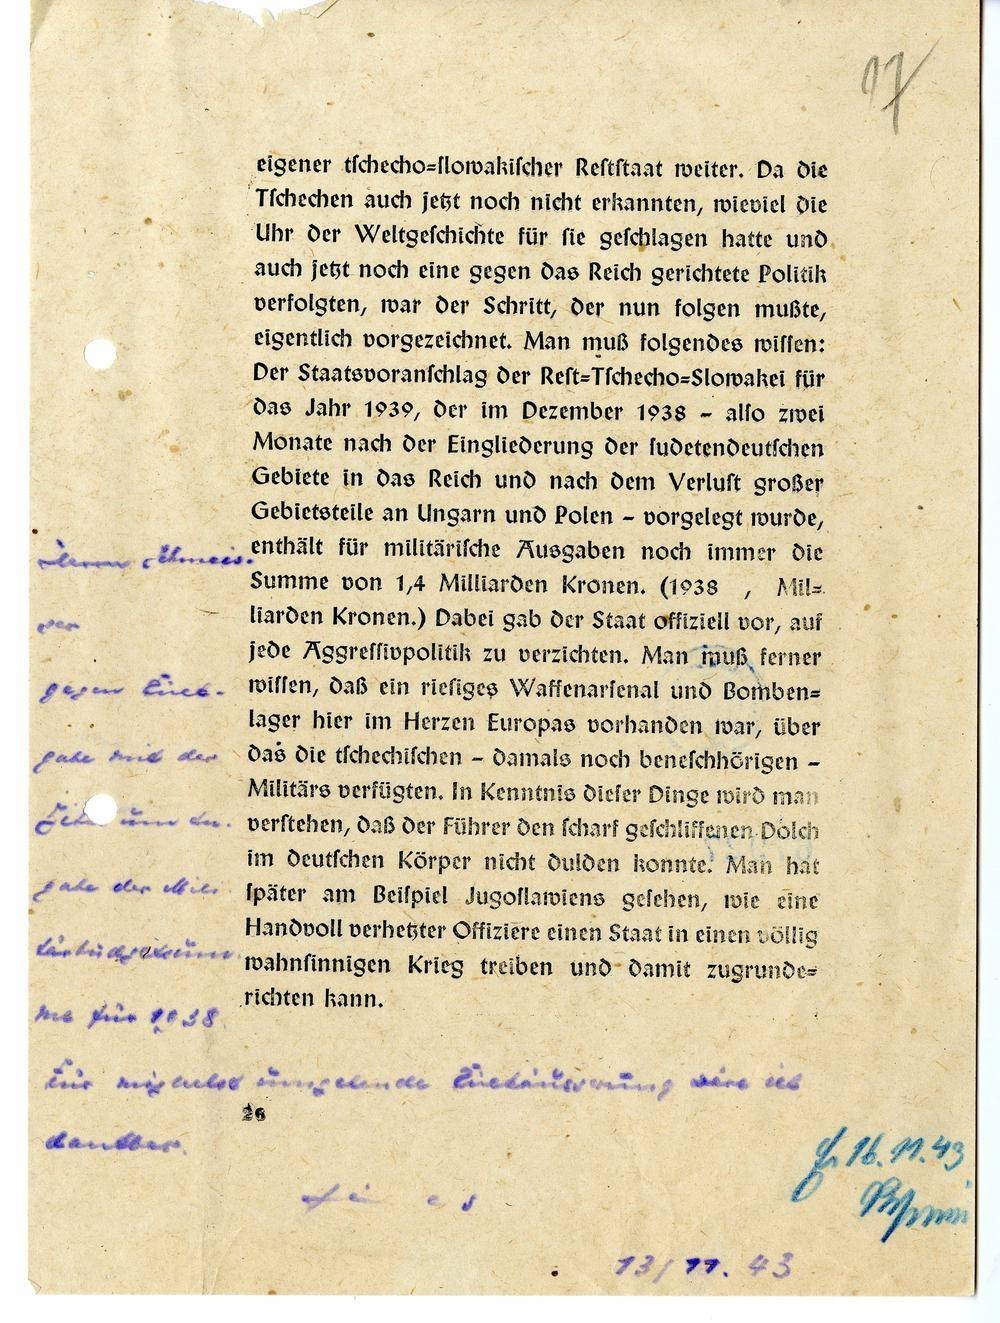 17
eigener tschecho=slowakischer Reststaat weiter. Da die
Tschechen auch jetzt noch nicht erkannten, wieviel die
Uhr der Weltgeschichte für sie geschlagen hatte und
auch jetzt noch eine gegen das Reich gerichtete Politik
verfolgten, war der Schritt, der nun folgen mußte,
eigentlich vorgezeichnet. Man muß folgendes wissen:
Der Staatsvoranschlag der Rest=Tschecho=Slowakei für
das Jahr 1939, der im Dezember 1938 – also zwei
Monate nach der Eingliederung der sudetendeutschen
Gebiete in das Reich und nach dem Verlust großer
Gebietsteile an Ungarn und Polen – vorgelegt wurde,
enthält für militärische Ausgaben noch immer die
Summe von 1,4 Milliarden Kronen. (1938 , Mil=
liarden Kronen.) Dabei gab der Staat offiziell vor, auf
jede Aggressivpolitik zu verzichten. Man muß ferner
wissen, daß ein riesiges Waffenarsenal und Bomben=
lager hier im Herzen Europas vorhanden war, über
das die tschechischen – damals noch beneschhörigen –
Militärs verfügten. In Kenntnis dieser Dinge wird man
verstehen, daß der Führer den scharf geschliffenen Dolch
im deutschen Körper nicht dulden konnte. Man hat
später am Beispiel Jugoslawiens gesehen, wie eine
Handvoll verhetzter Offiziere einen Staat in einen völlig
wahnsinnigen Krieg treiben und damit zugrunde=
richten kann.
Herrn
gegen Rück-
gabe mit der
um An-
gabe der Mili
tärbudgetsum
me für 1938.
Für möglichst umgehende Rückäusserung wäre ich
26
dankbar.
16.11.43
13/11.43